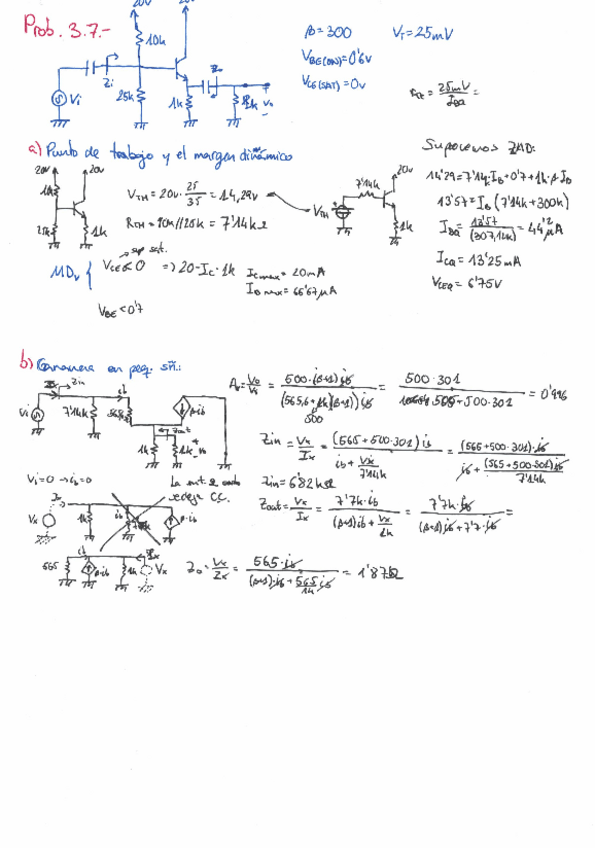 Prob. 3.7.-
20v 20v
10k
β=300 V_T=25mV
V_BE(ON)=0'6v
V_CE(SAT)=0v
Zi
Vi
25k
1k
1k
a) Punto de trabajo y el margen dinámico
20v 20v
10k
25k
1k
V_TH = 20v · 25/35 = 14,29v
R_TH = 10k//25k = 7'14kΩ
V_TH
7'14k
20v
1k
Suponemos ZAD:
14'29=7'14k·I_B+0'7+1k·β·I_B
13'57=I_B(7'14k+300k)
I_BQ = 13'57/(307,14k) = 44'2μA
I_CQ = 13'25mA
V_CEQ = 6'75v
sup sat.
MDv { V_CE<0 => 20-I_C·1k
I_Cmax=20mA
I_Bmax=66'67μA
V_BE<0'7
b) Ganancia en peq. señ.:
Zin
Vi
7'14k
565
β·ib
Zout
1k
1k
Av=Vo/Vi = 500·(β+1)ib/(565+1k(β+1))ib = 500·301/565+500·301 = 0'996
500
Zin=Vx/Ix = (565+500·301)ib/ib+Vx/7'14k = (565+500·301)·ib/ib+(565+500·301)ib/7'14k
Zin=6'82kΩ
Vi=0 → ib=0
Ix
Vx
1k
ib
β·ib
Zout=Vx/Ix = 7'7k·ib/(β+1)ib+Vx/1k = 7'7k·ib/(β+1)ib+7'7·ib =
565
ib
β·ib
1k
Ix
Vx
Zo=Vx/Ix = 565·ib/(β+1)·ib+565/1k ib = 1'87Ω